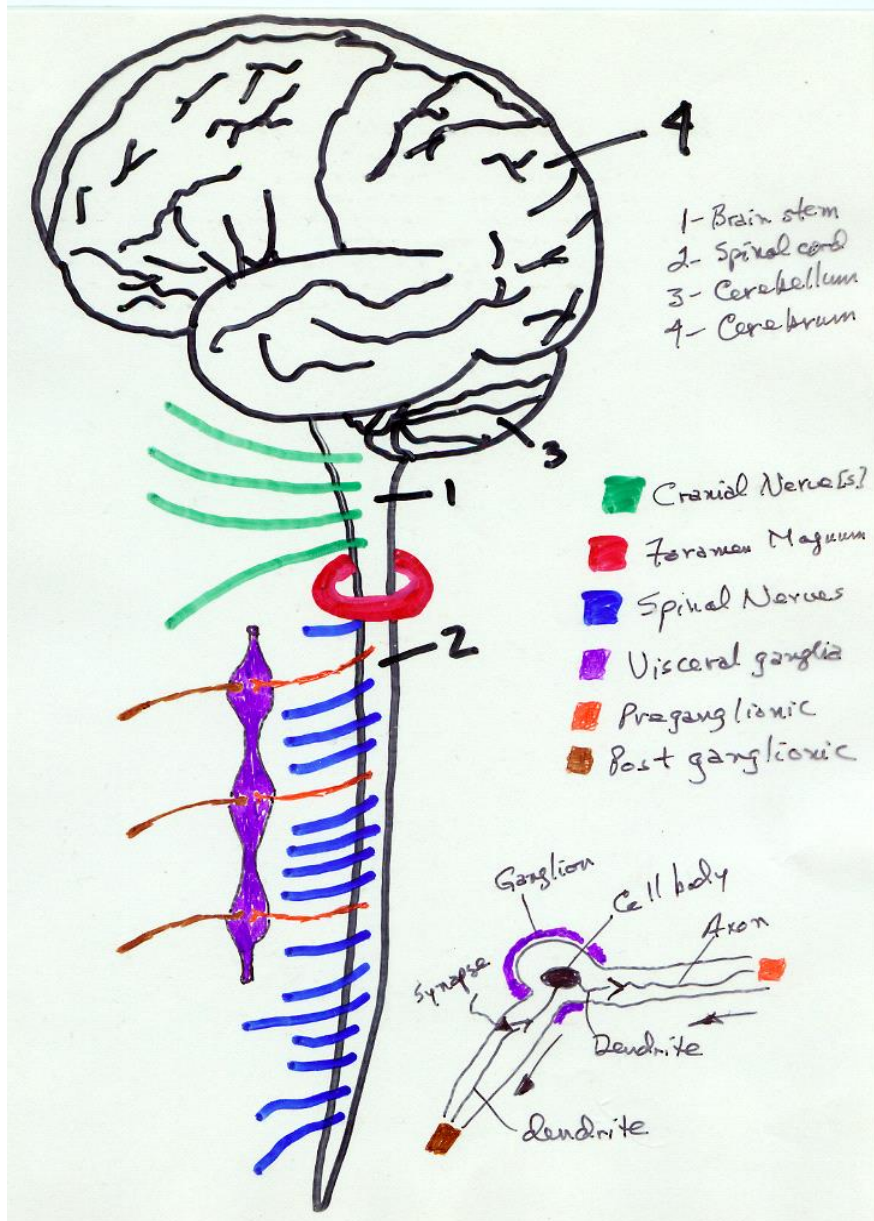 4
1- Brain stem
2- Spinal cord
3- Cerebellum
4- Cerebrum
3
1
Cranial Nerve[s]
Foramen Magnum
Spinal Nerves
2
Visceral ganglia
Preganglionic
Post ganglionic
Ganglion
Cell body
Axon
Synapse
Dendrite
dendrite